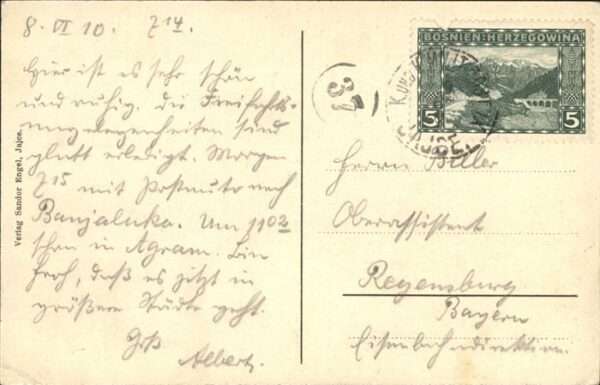 8. VI 10. 7 14.
Hier ist es sehr schön
und ruhig. die Freifahrts-
ungelegenheiten sind
glatt erledigt. Morgen
7 15 mit Postauto nach
Banjaluka. Um 11 02
schon in Agram. Bin
froh, daß es jetzt in
größere Städte geht.
Grß
Albert.
Verlag Sandor Engel, Jajce.
37
BOSNIEN-HERZEGOWINA
5 5
Herrn Biller
Oberassistent
Regensburg
Bayern
Eisenbahndirektion.